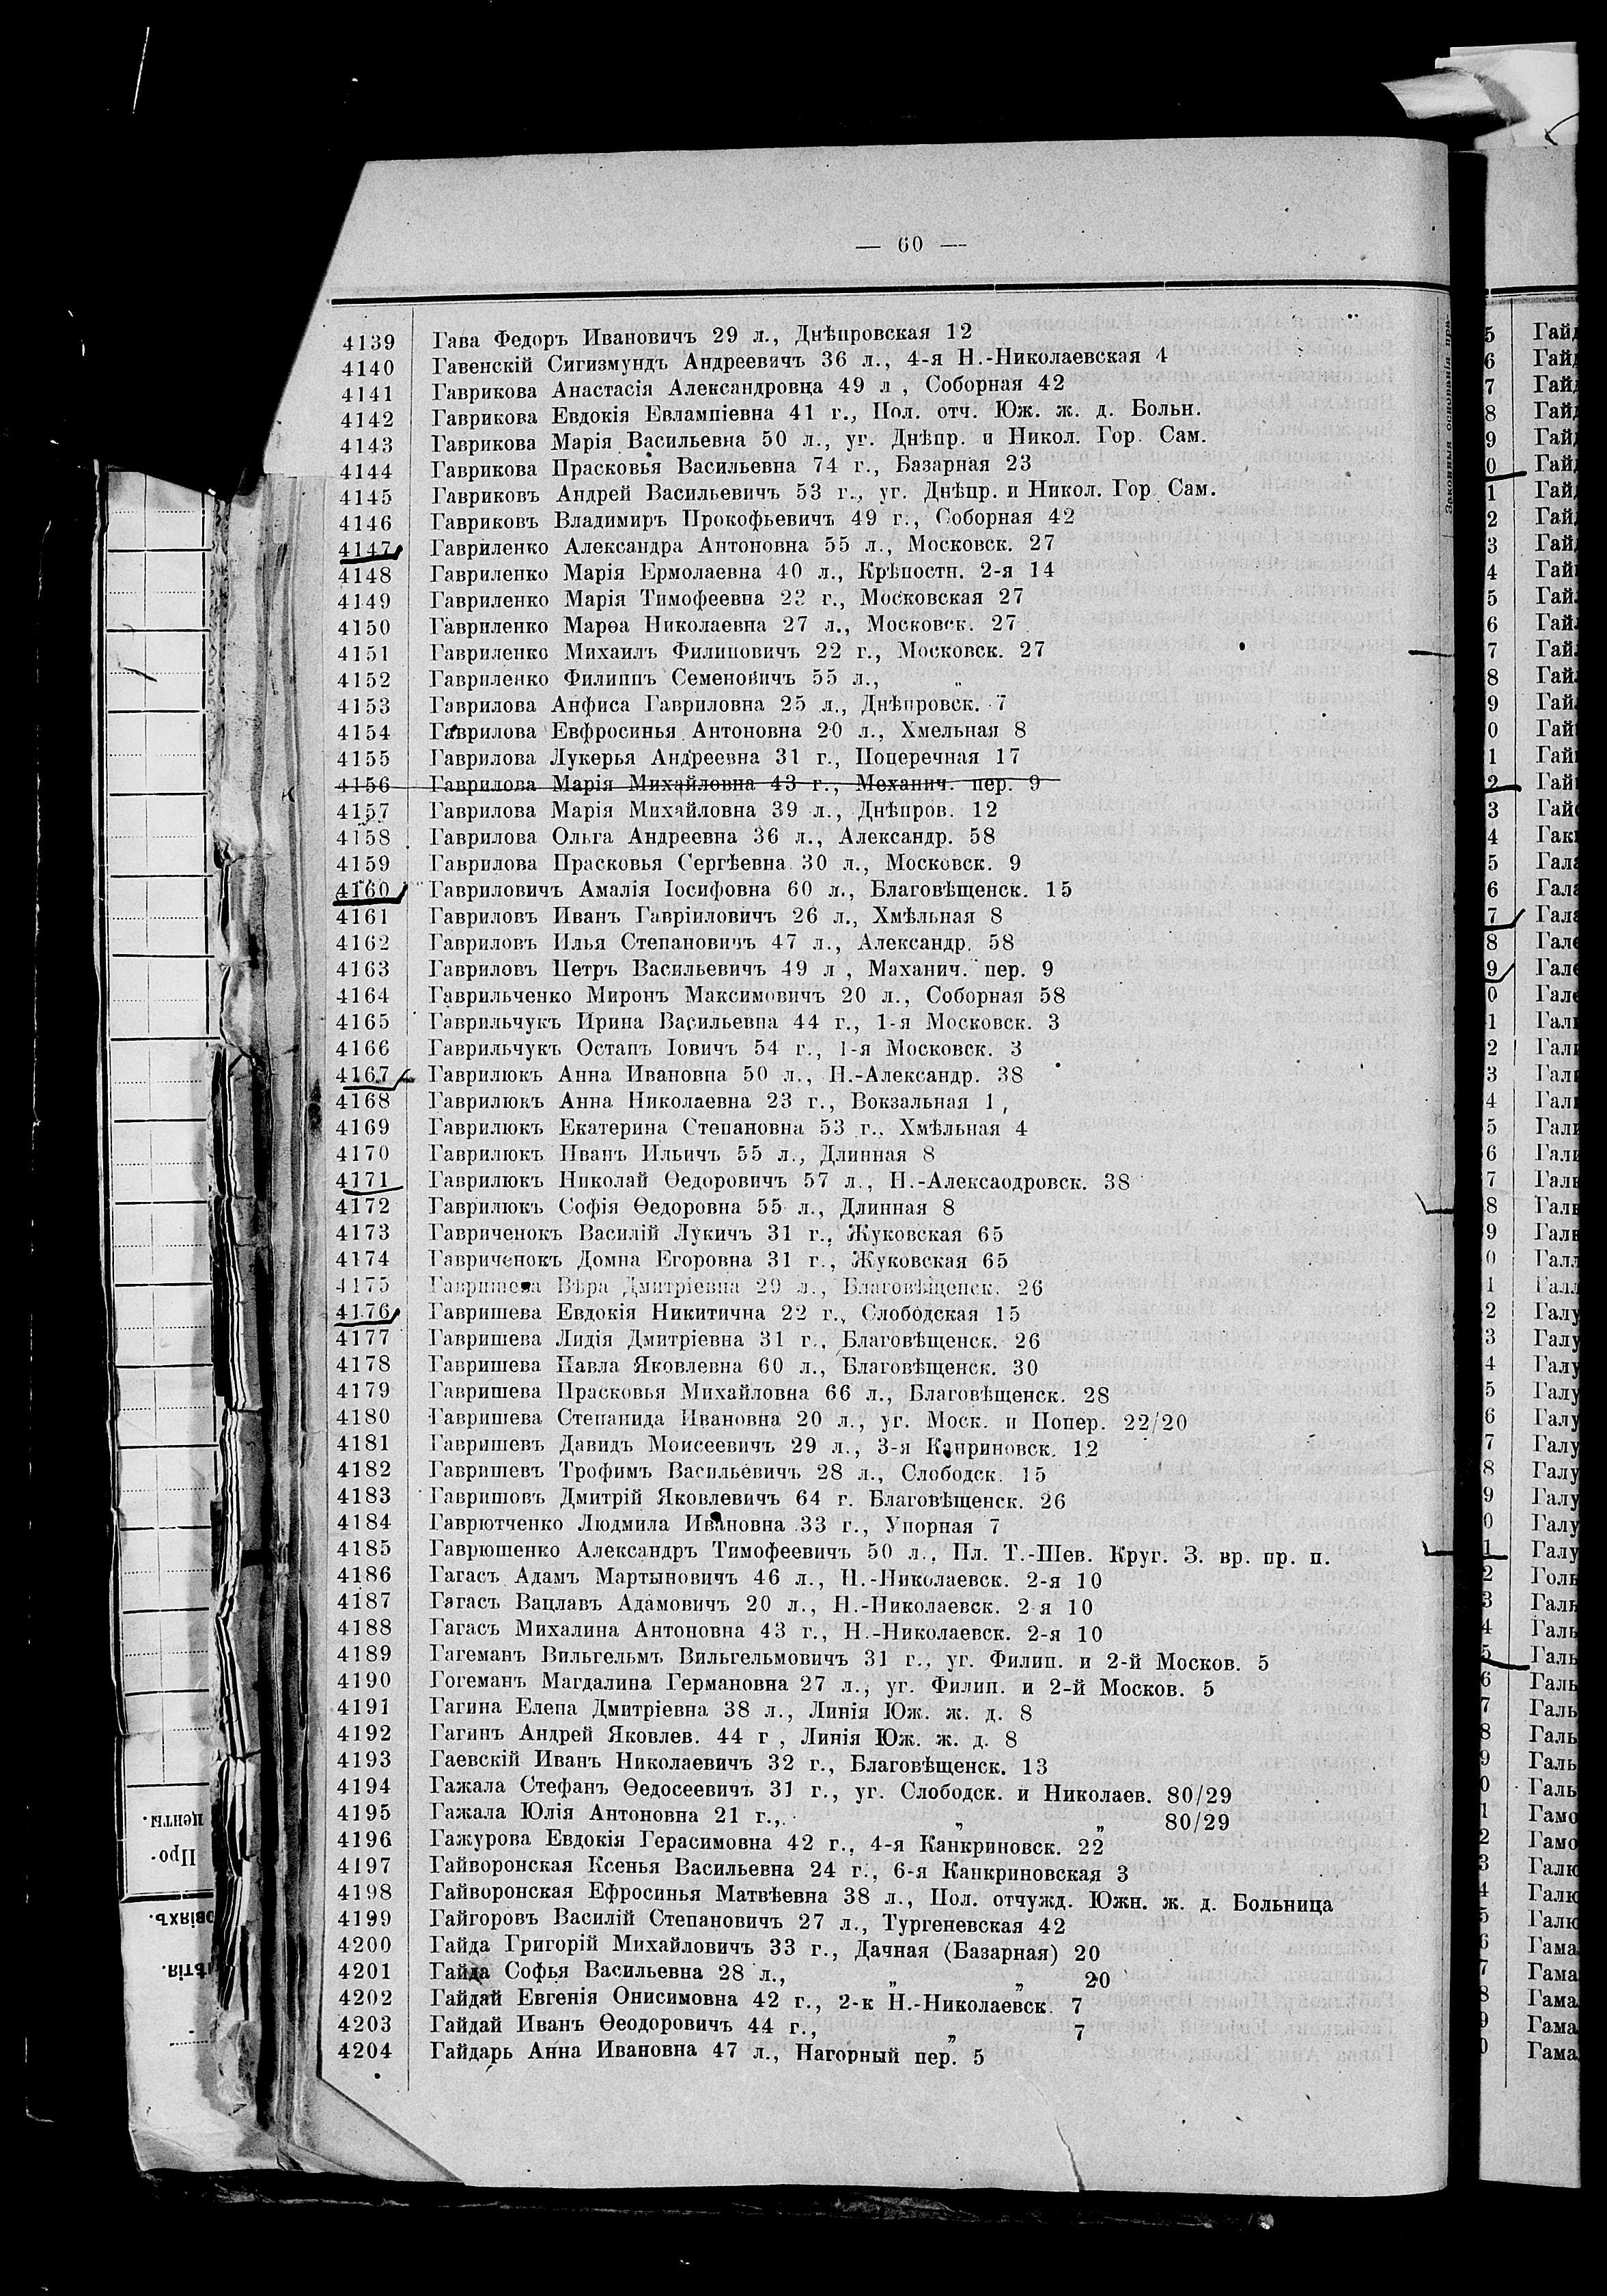 — 60 —
4139 Гава Федоръ Ивановичъ 29 л., Днѣпровская 12
4140 Гавенскій Сигизмундъ Андреевичъ 36 л., 4-я Н.-Николаевская 4
4141 Гаврикова Анастасія Александровца 49 л , Соборная 42
4142 Гаврикова Евдокія Евлампіевна 41 г., Пол. отч. Юж. ж. д. Больн.
4143 Гаврикова Марія Васильевна 50 л., уг. Днѣпр. и Никол. Гор. Сам.
4144 Гаврикова Прасковья Васильевна 74 г., Базарная 23
4145 Гавриковъ Андрей Васильевичъ 53 г., уг. Днѣпр. и Никол. Гор Сам.
4146 Гавриковъ Владимиръ Прокофьевичъ 49 г., Соборная 42
4147 Гавриленко Александра Антоновна 55 л., Московск. 27
4148 Гавриленко Марія Ермолаевна 40 л., Крѣпостн. 2-я 14
4149 Гавриленко Марія Тимофеевна 23 г., Московская 27
4150 Гавриленко Марѳа Николаевна 27 л., Московск. 27
4151 Гавриленко Михаилъ Филиповичъ 22 г., Московск. 27
4152 Гавриленко Филиппъ Семеновичъ 55 л., „
4153 Гаврилова Анфиса Гавриловна 25 л., Днѣпровск. 7
4154 Гаврилова Евфросинья Антоновна 20 л., Хмельная 8
4155 Гаврилова Лукерья Андреевна 31 г., Поперечная 17
4156 Гаврилова Марія Михайловна 43 г., Механич. пер. 9
4157 Гаврилова Марія Михайловна 39 л., Днѣпров. 12
4158 Гаврилова Ольга Андреевна 36 л., Александр. 58
4159 Гаврилова Прасковья Сергѣевна 30 л., Московск. 9
4160 Гавриловичъ Амалія Іосифовна 60 л., Благовѣщенск. 15
4161 Гавриловъ Иванъ Гавріиловичъ 26 л., Хмѣльная 8
4162 Гавриловъ Илья Степановичъ 47 л., Александр. 58
4163 Гавриловъ Петръ Васильевичъ 49 л , Маханич. пер. 9
4164 Гаврильченко Миронъ Максимовичъ 20 л., Соборная 58
4165 Гаврильчукъ Ирина Васильевна 44 г., 1-я Московск. 3
4166 Гаврильчукъ Остапъ Іовичъ 54 г., 1-я Московск. 3
4167 Гаврилюкъ Анна Ивановна 50 л., Н.-Александр. 38
4168 Гаврилюкъ Анна Николаевна 23 г., Вокзальная 1
4169 Гаврилюкъ Екатерина Степановна 53 г., Хмѣльная 4
4170 Гаврилюкъ Иванъ Ильичъ 55 л., Длинная 8
4171 Гаврилюкъ Николай Ѳедоровичъ 57 л., Н.-Алексаодровск. 38
4172 Гаврилюкъ Софія Ѳедоровна 55 л., Длинная 8
4173 Гавриченокъ Василій Лукичъ 31 г., Жуковская 65
4174 Гавриченокъ Домна Егоровна 31 г., Жуковская 65
4175 Гавришева Вѣра Дмитріевна 29 л., Благовѣщенск. 26
4176 Гавришева Евдокія Никитична 22 г., Слободская 15
4177 Гавришева Лидія Дмитріевна 31 г., Благовѣщенск. 26
4178 Гавришева Павла Яковлевна 60 л., Благовѣщенск. 30
4179 Гавришева Прасковья Михайловна 66 л., Благовѣщенск. 28
4180 Гавришева Степанида Ивановна 20 л., уг. Моск. и Попер. 22/20
4181 Гавришевъ Давидъ Моисеевичъ 29 л., 3-я Канриновск. 12
4182 Гавришевъ Трофимъ Васильевичъ 28 л., Слободск. 15
4183 Гавришовъ Дмитрій Яковлевичъ 64 г. Благовѣщенск. 26
4184 Гаврютченко Людмила Ивановна 33 г., Упорная 7
4185 Гаврюшенко Александръ Тимофеевичъ 50 л., Пл. Т.-Шев. Круг. З. вр. пр. п.
4186 Гагасъ Адамъ Мартыновичъ 46 л., Н.-Николаевск. 2-я 10
4187 Гагасъ Вацлавъ Адамовичъ 20 л., Н.-Николаевск. 2-я 10
4188 Гагасъ Михалина Антоновна 43 г., Н.-Николаевск. 2-я 10
4189 Гагеманъ Вильгельмъ Вильгельмовичъ 31 г., уг. Филип. и 2-й Москов. 5
4190 Гогеманъ Магдалина Германовна 27 л., уг. Филип. и 2-й Москов. 5
4191 Гагина Елена Дмитріевна 38 л., Линія Юж. ж. д. 8
4192 Гагинъ Андрей Яковлев. 44 г , Линія Юж. ж. д. 8
4193 Гаевскій Иванъ Николаевичъ 32 г., Благовѣщенск. 13
4194 Гажала Стефанъ Ѳедосеевичъ 31 г., уг. Слободск. и Николаев. 80/29
4195 Гажала Юлія Антоновна 21 г., „ „ 80/29
4196 Гажурова Евдокія Герасимовна 42 г., 4-я Канкриновск. 22
4197 Гайворонская Ксенья Васильевна 24 г., 6-я Канкриновская 3
4198 Гайворонская Ефросинья Матвѣевна 38 л., Пол. отчужд. Южн. ж. д. Больница
4199 Гайгоровъ Василій Степановичъ 27 л., Тургеневская 42
4200 Гайда Григорій Михайловичъ 33 г., Дачная (Базарная) 20
4201 Гайда Софья Васильевна 28 л., „ „ 20
4202 Гайдай Евгенія Онисимовна 42 г., 2-к Н.-Николаевск. 7
4203 Гайдай Иванъ Ѳеодоровичъ 44 г., „ 7
4204 Гайдарь Анна Ивановна 47 л., Нагорный пер. 5